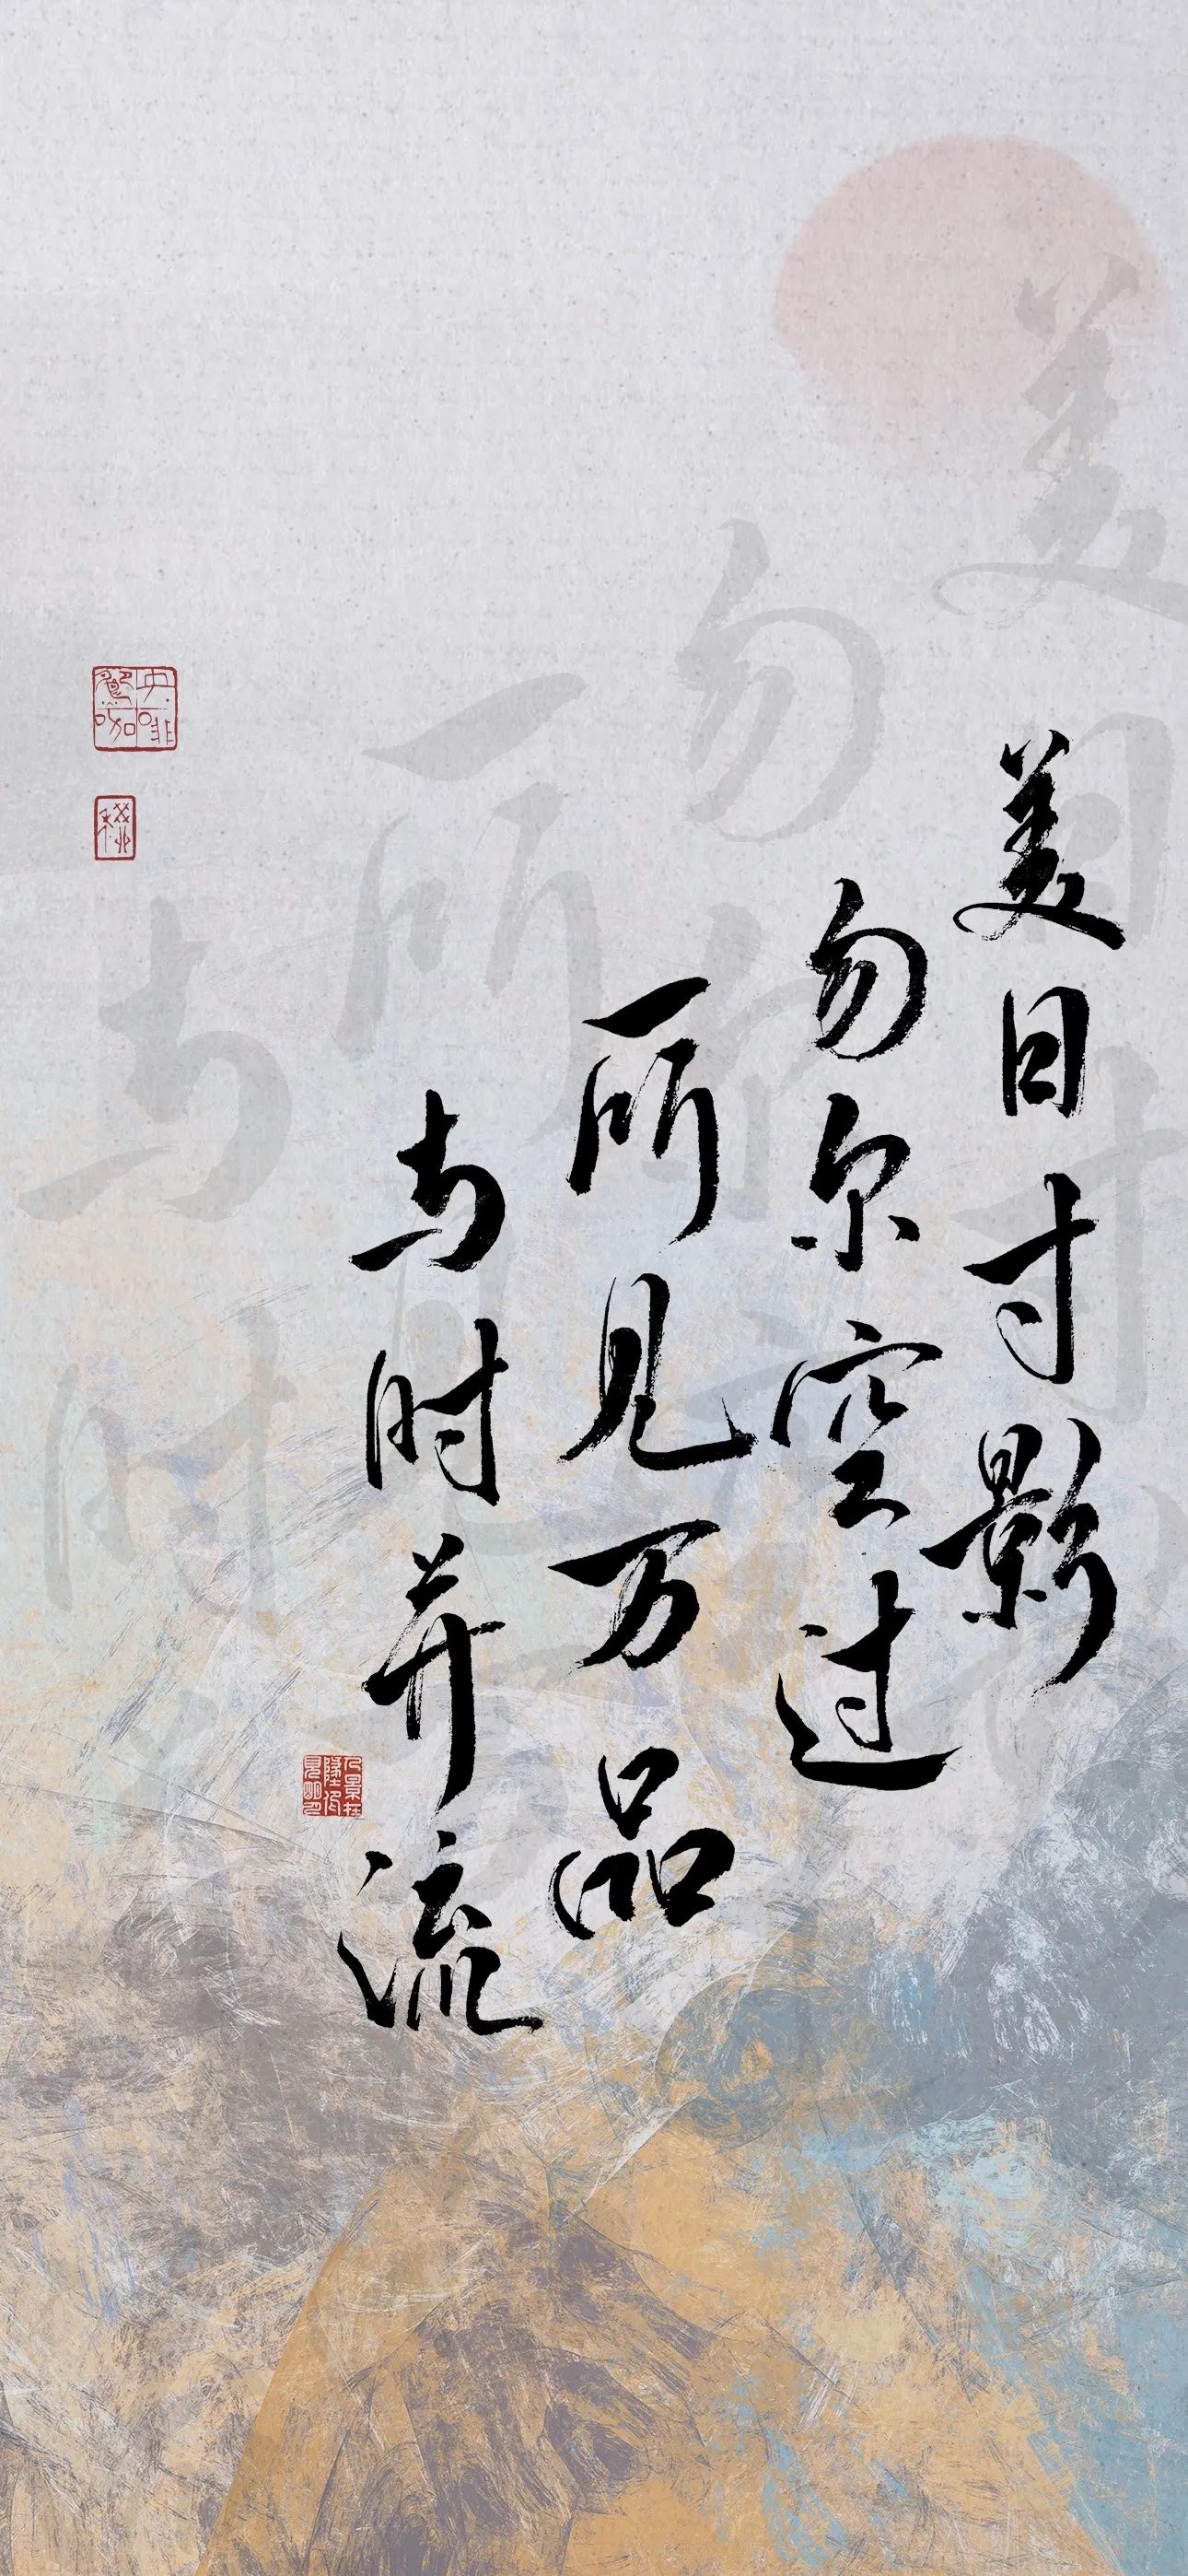 美日寸影
勿尔空过
所见万品
与时并流